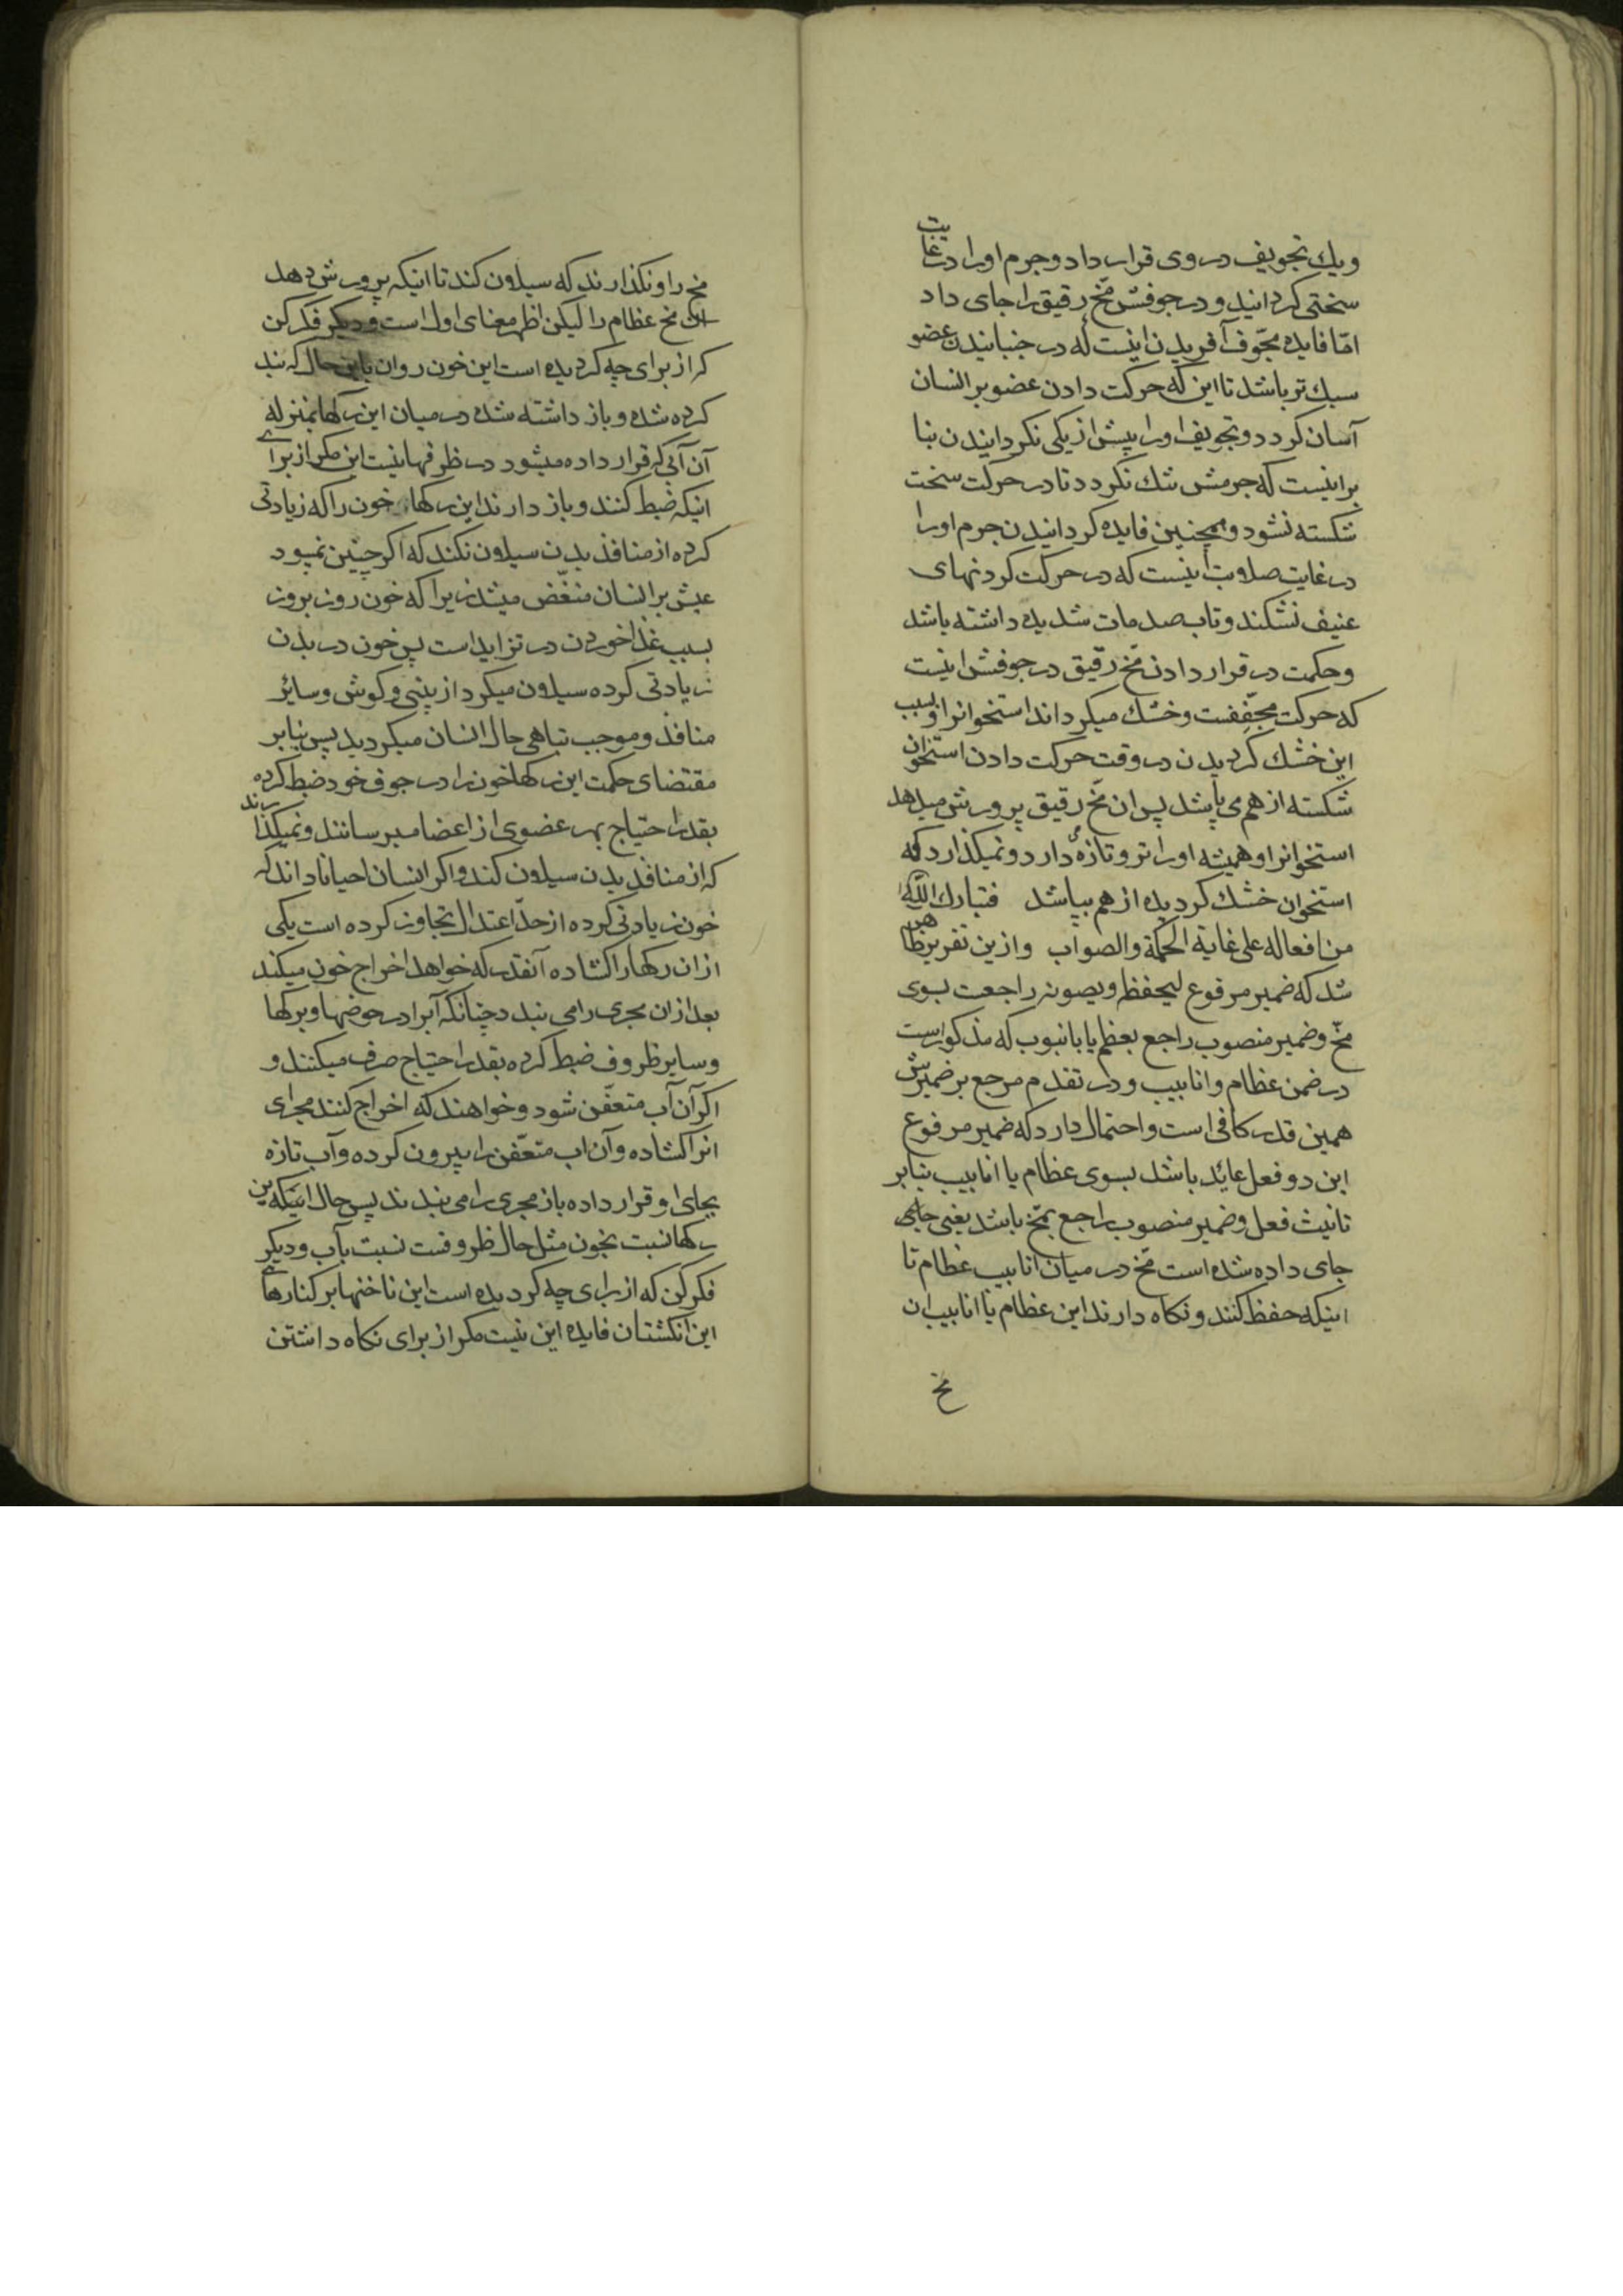 ویک تجویف در وی قرار داد و جرم او را در غایت
سختی کردانید و در جوفش مخ رقیق را جای داد
امّا فایده مجوّف آفریدن اینست که در جنبانیدن عضو
سبک تر باشد تا این که حرکت دادن عضو بر انسان
آسان کردد و تجویف او را پیش از یکی نکردانیدن بنا
براینست که جرمش تنک نکردد تا در حرکت سخت
شکسته نشود و همچنین فایده کردانیدن جرم او را
در غایت صلابت اینست که در حرکت کردنهای
عنیف نشکند و تاب صدمات شدیده داشته باشد
و حکمت در قرار دادن مخّ رقیق در جوفش اینست
که حرکت مجفّفست و خشک میکرداند استخوانرا و بسبب
این خشک کردیدن در وقت حرکت دادن استخوان
شکسته از هم می پاشد پس ان مخّ رقیق پرورش میدهد
استخوانرا و همیشه او را تر و تازه دارد و نمیکذارد که
استخوان خشک کردیده از هم بپاشد فتبارک اللّه
من افعاله علی غایة الحکمة والصواب و ازین تقریر ظاهر
شد که ضمیر مرفوع لیحفظه و یصونه راجعت بسوی
مخّ و ضمیر منصوب راجع بعظم یا بانبوب که مذکور است
در ضمن عظام و انابیب و در تقدم مرجع بر ضمیرش
همین قدر کافی است و احتمال دارد که ضمیر مرفوع
این دو فعل عاید باشد بسوی عظام یا انابیب بنابر
تانیث فعل و ضمیر منصوب راجع بمخّ باشد یعنی جای
جای داده شده است مخّ در میان انابیب عظام تا
اینکه حفظ کنند و نکاه دارند این عظام یا انابیب ان
مخ
مخ را و نکذارند که سیلان کند تا اینکه پرورش دهد
ان مخ عظام را لیکن اظهر معنای اول است و دیکر فکر کن
که از برای چه کردیده است این خون روان باین حال که بند
کرده شده و باز داشته شده در میان این رکها بمنزله
آن آبی که قرار داده میشود در ظرفها نیست این مکر از برای
اینکه ضبط کنند و باز دارند این رکها خون را که زیادتی
کرده از منافذ بدن سیلان نکند که اکر چنین نمیبود
عیش بر انسان منغّص میشد زیرا که خون روز بروز
بسبب غذا خوردن در تزاید است پس خون در بدن
زیادتی کرده سیلان میکرد از بینی و کوش و سایر
منافذ و موجب تباهی حال انسان میکردید پس بنابر
مقتضای حکمت این رکها خون را در جوف خود ضبط کرده
بقدر احتیاج بهر عضوی از اعضا میرسانند و نمیکذارند
که از منافذ بدن سیلان کند و اکر انسان احیانا داند که
خون زیادتی کرده از حدّ اعتدال تجاوز کرده است یکی
از ان رکها را کشاده آنقدر که خواهد اخراج خون میکند
بعد از ان مجری را می بندد چنانکه آبرا در حوضها و برکها
و سایر ظروف ضبط کرده بقدر احتیاج صرف میکنند و
اکر آن آب متعفّن شود و خواهند که اخراج کنند مجرای
انرا کشاده و آن اب متعفّن را بیرون کرده و آب تازه
بجای او قرار داده باز مجری را می بندند پس حال اینکه این
رکها نسبت بخون مثل حال ظروفست نسبت بآب و دیکر
فکر کن که از برای چه کردیده است این ناخنها بر کنارهای
این انکشتان فایده این نیست مکر از برای نکاه داشتن